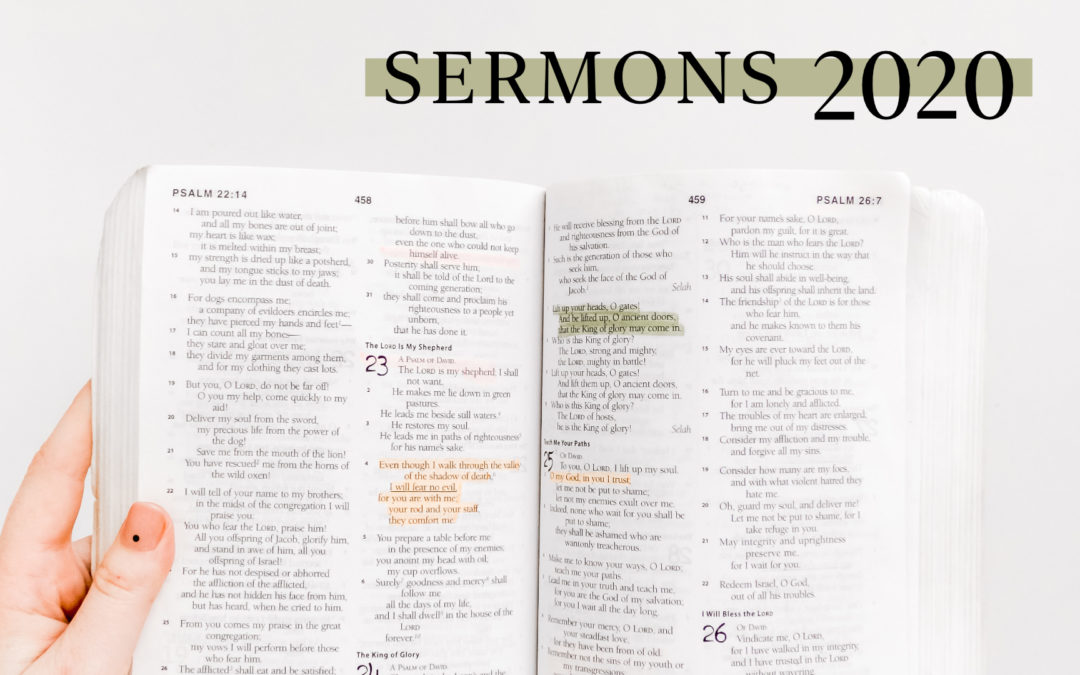 SERMONS 2020
PSALM 22:14
458
14 I am poured out like water,
and all my bones are out of joint;
my heart is like wax;
it is melted within my breast;
15 my strength is dried up like a potsherd,
and my tongue sticks to my jaws;
you lay me in the dust of death.
16 For dogs encompass me;
a company of evildoers encircles me;
they have pierced my hands and feet—
17 I can count all my bones—
they stare and gloat over me;
18 they divide my garments among them,
and for my clothing they cast lots.
19 But you, O LORD, do not be far off!
O you my help, come quickly to my
aid!
20 Deliver my soul from the sword,
my precious life from the power of
the dog!
21 Save me from the mouth of the lion!
You have rescued² me from the horns of
the wild oxen!
22 I will tell of your name to my brothers;
in the midst of the congregation I will
praise you:
You who fear the LORD, praise him!
All you offspring of Jacob, glorify him,
and stand in awe of him, all you
offspring of Israel!
For he has not despised or abhorred
the affliction of the afflicted,
and he has not hidden his face from him,
but has heard, when he cried to him.
25 From you comes my praise in the great
congregation;
my vows I will perform before those
who fear him.
26 The afflicted³ shall eat and be satisfied;
before him shall bow all who go
down to the dust,
even the one who could not keep
himself alive.
30 Posterity shall serve him;
it shall be told of the Lord to the
coming generation;
31 they shall come and proclaim his
righteousness to a people yet
unborn,
that he has done it.
The LORD Is My Shepherd
23 A PSALM OF DAVID.
The LORD is my shepherd; I shall
not want.
2 He makes me lie down in green
pastures.
He leads me beside still waters.⁴
3 He restores my soul.
He leads me in paths of righteousness⁵
for his name's sake.
4 Even though I walk through the valley
of the shadow of death,⁶
I will fear no evil,
for you are with me;
your rod and your staff,
they comfort me.
5 You prepare a table before me
in the presence of my enemies;
you anoint my head with oil;
my cup overflows.
6 Surely⁷ goodness and mercy⁸ shall
follow me
all the days of my life,
and I shall dwell⁹ in the house of the
LORD
forever.¹⁰
The King of Glory
24 A PSALM OF DAVID.
459
PSALM 26:7
He will receive blessing from the LORD
and righteousness from the God of
his salvation.
Such is the generation of those who
seek him,
who seek the face of the God of
Jacob.² Selah
Lift up your heads, O gates!
And be lifted up, O ancient doors,
that the King of glory may come in.
Who is this King of glory?
The LORD, strong and mighty,
the LORD, mighty in battle!
Lift up your heads, O gates!
And lift them up, O ancient doors,
that the King of glory may come in.
Who is this King of glory?
The LORD of hosts,
he is the King of glory! Selah
Teach Me Your Paths
25 OF DAVID.
To you, O LORD, I lift up my soul.
O my God, in you I trust;
let me not be put to shame;
let not my enemies exult over me.
Indeed, none who wait for you shall be
put to shame;
they shall be ashamed who are
wantonly treacherous.
Make me to know your ways, O LORD;
teach me your paths.
Lead me in your truth and teach me,
for you are the God of my salvation;
for you I wait all the day long.
Remember your mercy, O LORD, and
your steadfast love,
for they have been from of old.
Remember not the sins of my youth or
my transgressions;
11 For your name's sake, O LORD,
pardon my guilt, for it is great.
12 Who is the man who fears the LORD?
Him will he instruct in the way that
he should choose.
13 His soul shall abide in well-being,
and his offspring shall inherit the land.
14 The friendship³ of the LORD is for those
who fear him,
and he makes known to them his
covenant.
15 My eyes are ever toward the LORD,
for he will pluck my feet out of the
net.
16 Turn to me and be gracious to me,
for I am lonely and afflicted.
17 The troubles of my heart are enlarged;
bring me out of my distresses.
18 Consider my affliction and my trouble,
and forgive all my sins.
19 Consider how many are my foes,
and with what violent hatred they
hate me.
20 Oh, guard my soul, and deliver me!
Let me not be put to shame, for I
take refuge in you.
21 May integrity and uprightness
preserve me,
for I wait for you.
22 Redeem Israel, O God,
out of all his troubles.
I Will Bless the LORD
26 OF DAVID.
Vindicate me, O LORD,
for I have walked in my integrity,
and I have trusted in the LORD
without wavering.